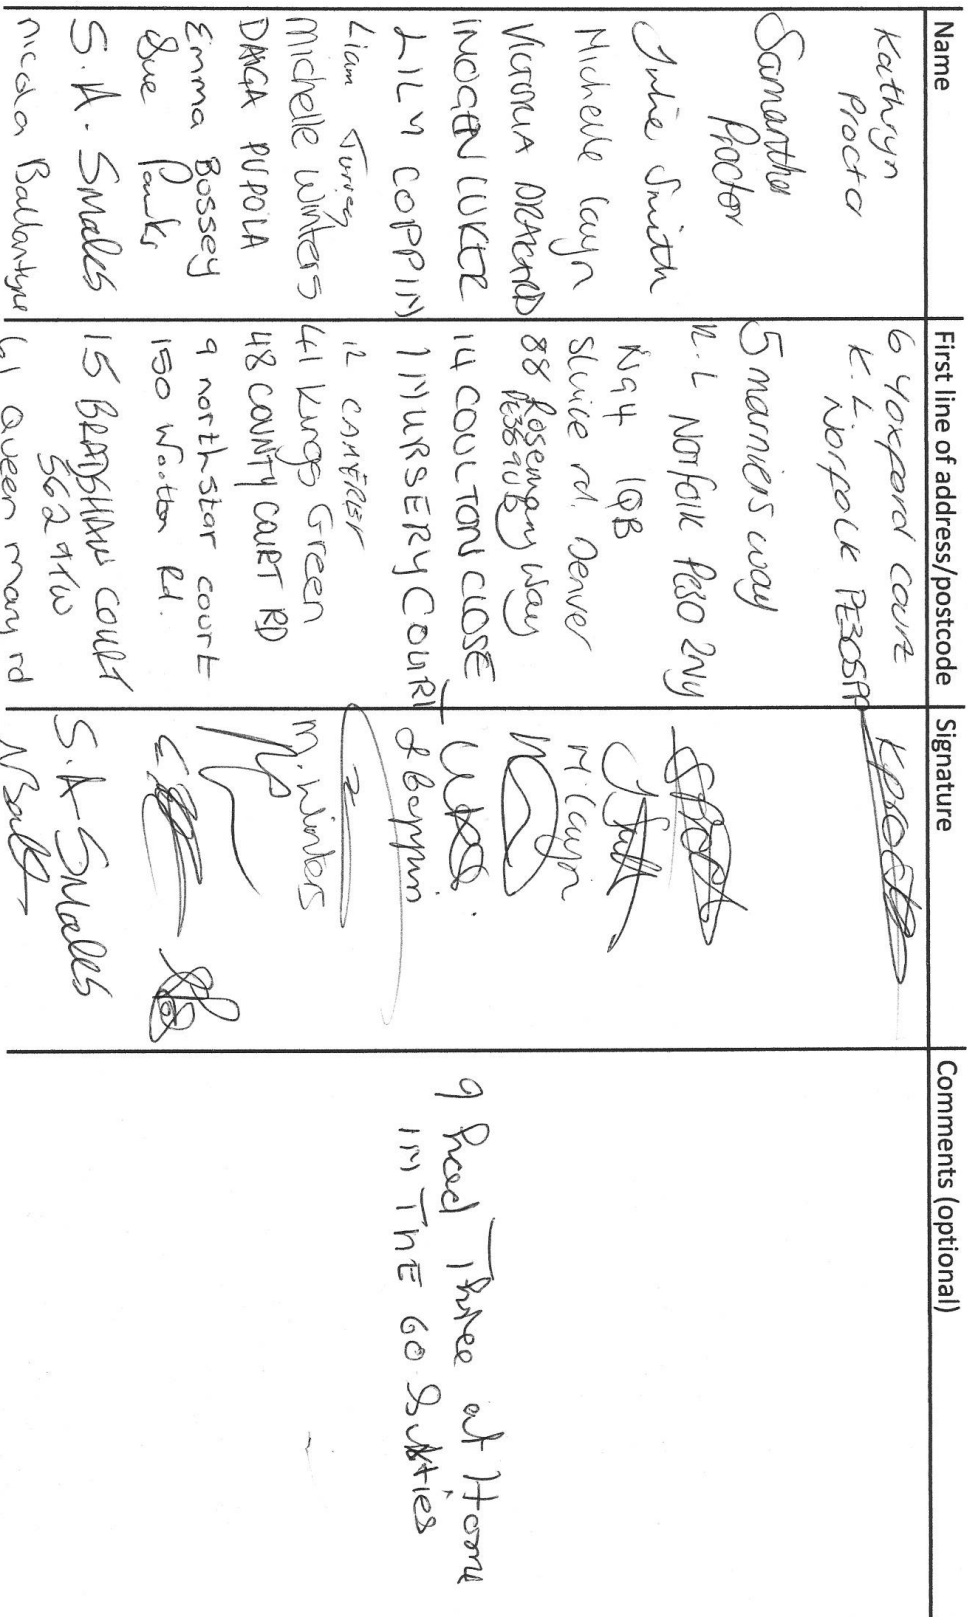 Name First line of address/postcode Signature Comments (optional)
Kathryn Procter 6 Yoxpord court K.L. Norfolk PE305PP KProcter
Samantha Proctor 5 marniers way K.L Norfolk Pe30 2NY
Julie Smith NR4 1QB
Michelle Cayn Sluice rd. Denver M Cayn
VICTORIA 88 Rosemary Way
INOGEN LUKER 14 COULTON CLOSE
LILY COPPIN 1 NURSERY COURT L Coppin 9 had Three at Home IN THE 60 Sixties
Liam Turvey 12
Michelle Winters 41 Kings Green M. Winters
DAIGA PUPOLA 48 COUNTY COURT RD
Emma Bossey 9 northstar court
Sue Parks 150 Wootton Rd.
S. A. Smalles 15 BRADSHAW COURT S.A Smalles
nicola Ballantyne 61 Queen mary rd NBall